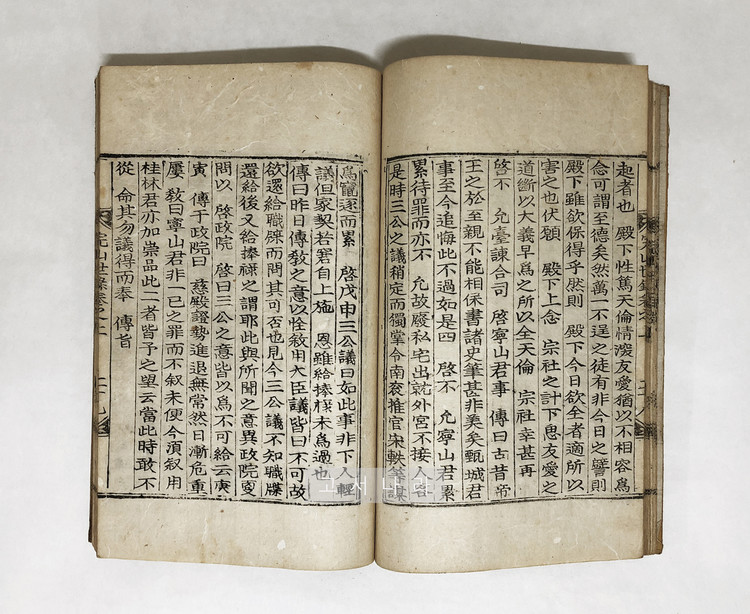 起者也　殿下性篤天倫情深友愛猶以不相容爲
念可謂至德矣然萬一不逞之徒有非今日之譬則
殿下雖欲保得乎然則　殿下今日欲全者適所以
害之也伏願　殿下上念　宗社之計下思友愛之
道斷以大義早爲之所以全天倫　宗社幸甚再
啓不　允臺諫合司　啓寧山君事　傳曰古昔帝
王之於至親不能相保書諸史筆甚非美矣甄城君
事至今追悔此不過如是四　啓不　允寧山君累
累待罪而亦不　允故廢私宅出就外宮不接人客
是時三公之議稍定而獨掌令南袞推官宋軼等謀
爲竄逐而累　啓戊申三公議曰如此事非下人輕
議但家契若窘自上施　恩雖給捧祿未爲過也
傳曰昨日傳敎之意以怪敘用大臣議皆曰不可故
欲還給職牒而問其可否也見今三公議不知職牒
還給後又給捧祿之謂耶此與所聞之意異政院更
問以　啓政院　啓曰三公之意皆以爲不可給云庚
寅　傳于政院曰　慈殿證勢進退無常然日漸危重
屢　敎曰寧山君非一己之罪而不叙未便今須叙用
桂林君亦加崇品此二者皆予之望云當此時敢不
從　命其勿議得而奉　傳旨
完山世錄卷之二　二十九
고서